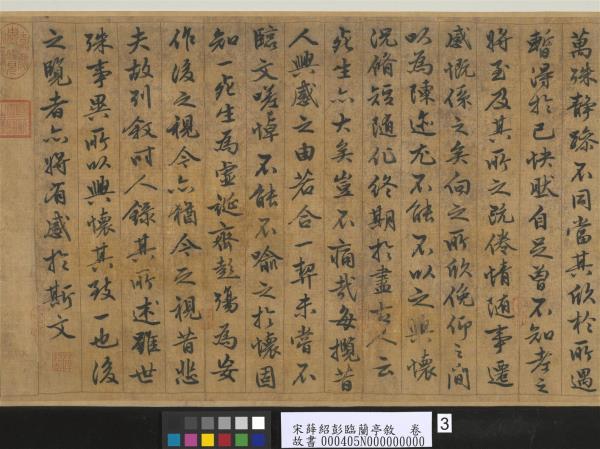 萬殊靜躁不同當其欣於所遇
暫得於己快然自足曾不知老之
將至及其所之既倦情隨事遷
感慨係之矣向之所欣俛仰之間
以為陳迹尤不能不以之興懷
況脩短隨化終期於盡古人云
死生亦大矣豈不痛哉每攬昔
人興感之由若合一契未嘗不
臨文嗟悼不能不喻之於懷固
知一死生為虛誕齊彭殤為妄
作後之視今亦猶今之視昔悲
夫故列敘時人錄其所述雖世
殊事異所以興懷其致一也後
之覽者亦將有感於斯文
宋薛紹彭臨蘭亭敘 卷
故書 000405N000000000
3